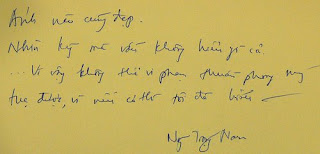 Ảnh nào cũng đẹp.
Nhìn kỹ mà vẫn không hiểu gì cả
... Vì vậy không thể vi phạm thuần phong mỹ
tục được, vì nếu có thì tôi đã biết
Ng Trọng